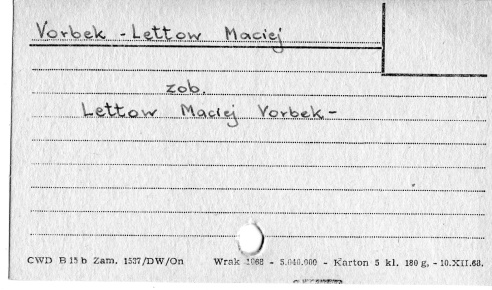 Vorbek - Lettow Maciej
zob.
Lettow Maciej Vorbek -
CWD B 15 b Zam. 1537/DW/On Wrak 1968 - 5.040.000 - Karton 5 kl. 180 g, - 10.XII.68.